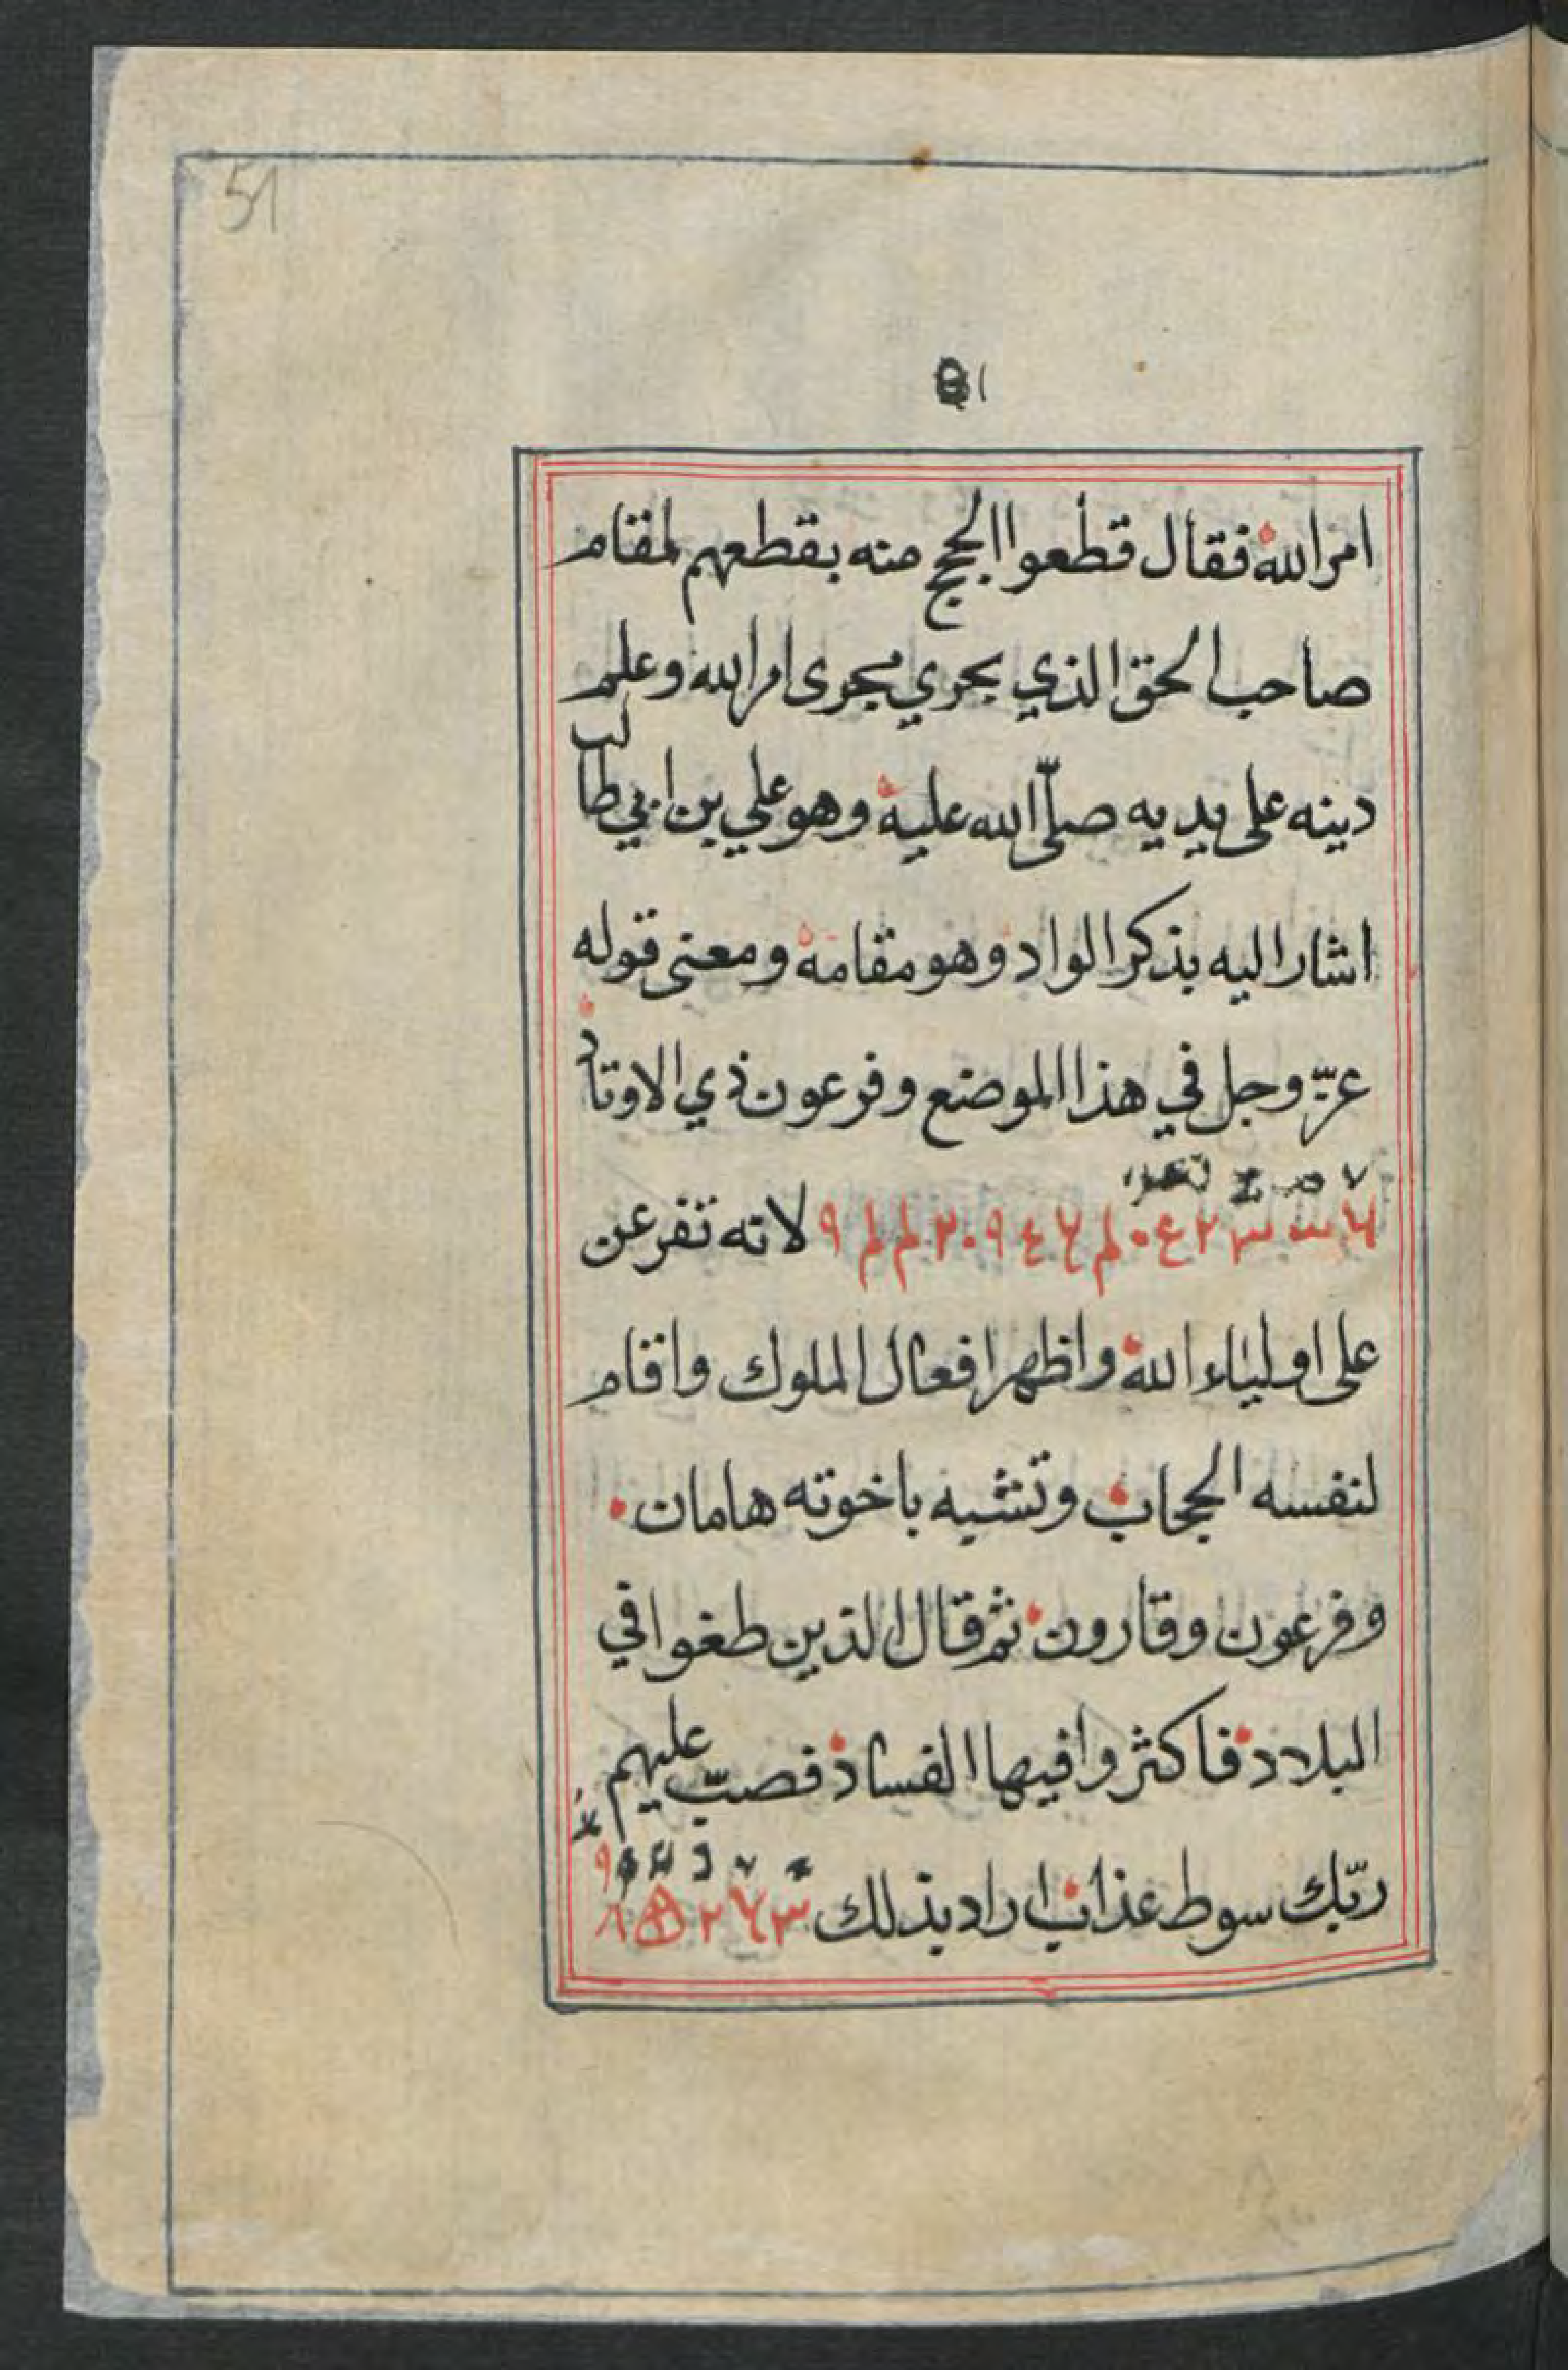 51
٥١
امر الله فقال قطعوا الحجج منه بقطعهم لمقام
صاحب الحق الذي يجري مجرى امر الله وعلم
دينه على يديه صلّى الله عليه وهو علي بن ابي طالب
اشار اليه بذكر الواد وهو مقامه ومعنى قوله
عزّ وجل في هذا الموضع وفرعون ذي الاوتاد
لانه تفرعن
على اولياء الله واظهر افعال الملوك واقام
لنفسه الحجاب وتشبه باخوته هامان
وفرعون وقارون ثم قال الذين طغوا في
البلاد فاكثروا فيها الفساد فصبّ عليهم
ربّك سوط عذاب اراد بذلك